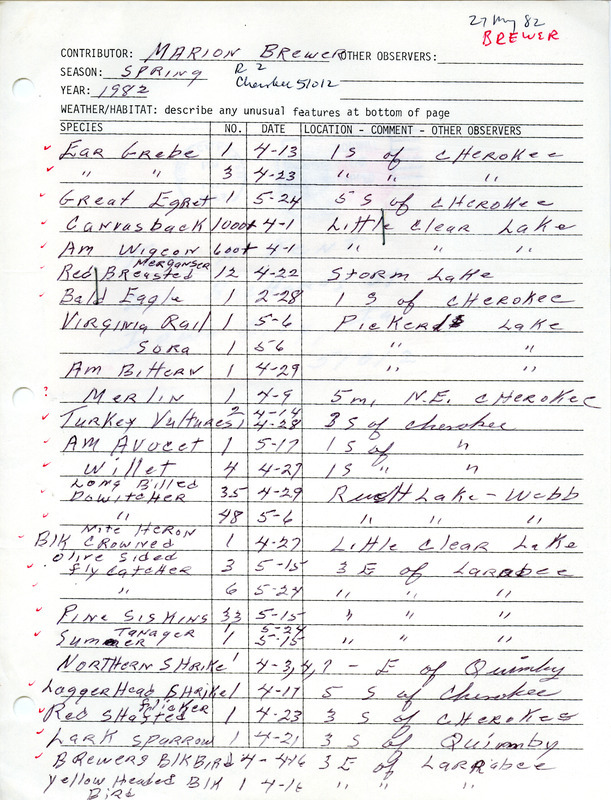 27 My 82
BREWER
CONTRIBUTOR: MARION BREWER OTHER OBSERVERS:
SEASON: SPRING R 2
Cherokee 51012
YEAR: 1982
WEATHER/HABITAT: describe any unusual features at bottom of page
SPECIES NO. DATE LOCATION - COMMENT - OTHER OBSERVERS
Ear Grebe 1 4-13 1 S of CHEROKEE
" " 3 4-23 " " "
Great Egret 1 5-24 5 S of CHEROKEE
Canvasback 1000+ 4-1 Little Clear Lake
Am Wigeon 600+ 4-1 " " "
Red Breasted Merganser 12 4-22 STORM LAKE
Bald Eagle 1 2-28 1 S of CHEROKEE
Virginia Rail 1 5-6 Pickerds Lake
Sora 1 5-6 " "
Am Bittern 1 4-29 " "
? Merlin 1 4-9 5 m, N.E. CHEROKEE
Turkey Vultures 2 4-14
1 4-28 3 S of cherokee
AM AVOCET 1 5-17 1 S of "
Willet 4 4-27 1 S " "
Long Billed
Dowitcher 35 4-29 Rush Lake - Webb
" 48 5-6 " " "
Nite Heron
Blk Crowned 1 4-27 Little Clear Lake
Olive Sided
Flycatcher 3 5-15 3 E of Larabee
" 6 5-24 " " "
Pine Siskins 33 5-15 " " "
Summer Tanager 1 5-24
5-15 " " "
Northern Shrike 1 4-3,4,7 - E of Quimby
LoggerHead SHRIKE 1 4-17 5 S of Cherokee
Red Shafted Flicker 1 4-23 3 S of CHEROKEE
Lark Sparrow 1 4-21 3 S of Quimby
Brewers Blk Bird 4 - 4-16 3 E of Larrabee
Yellow Headed Blk 1 4-16 " " "
Bird